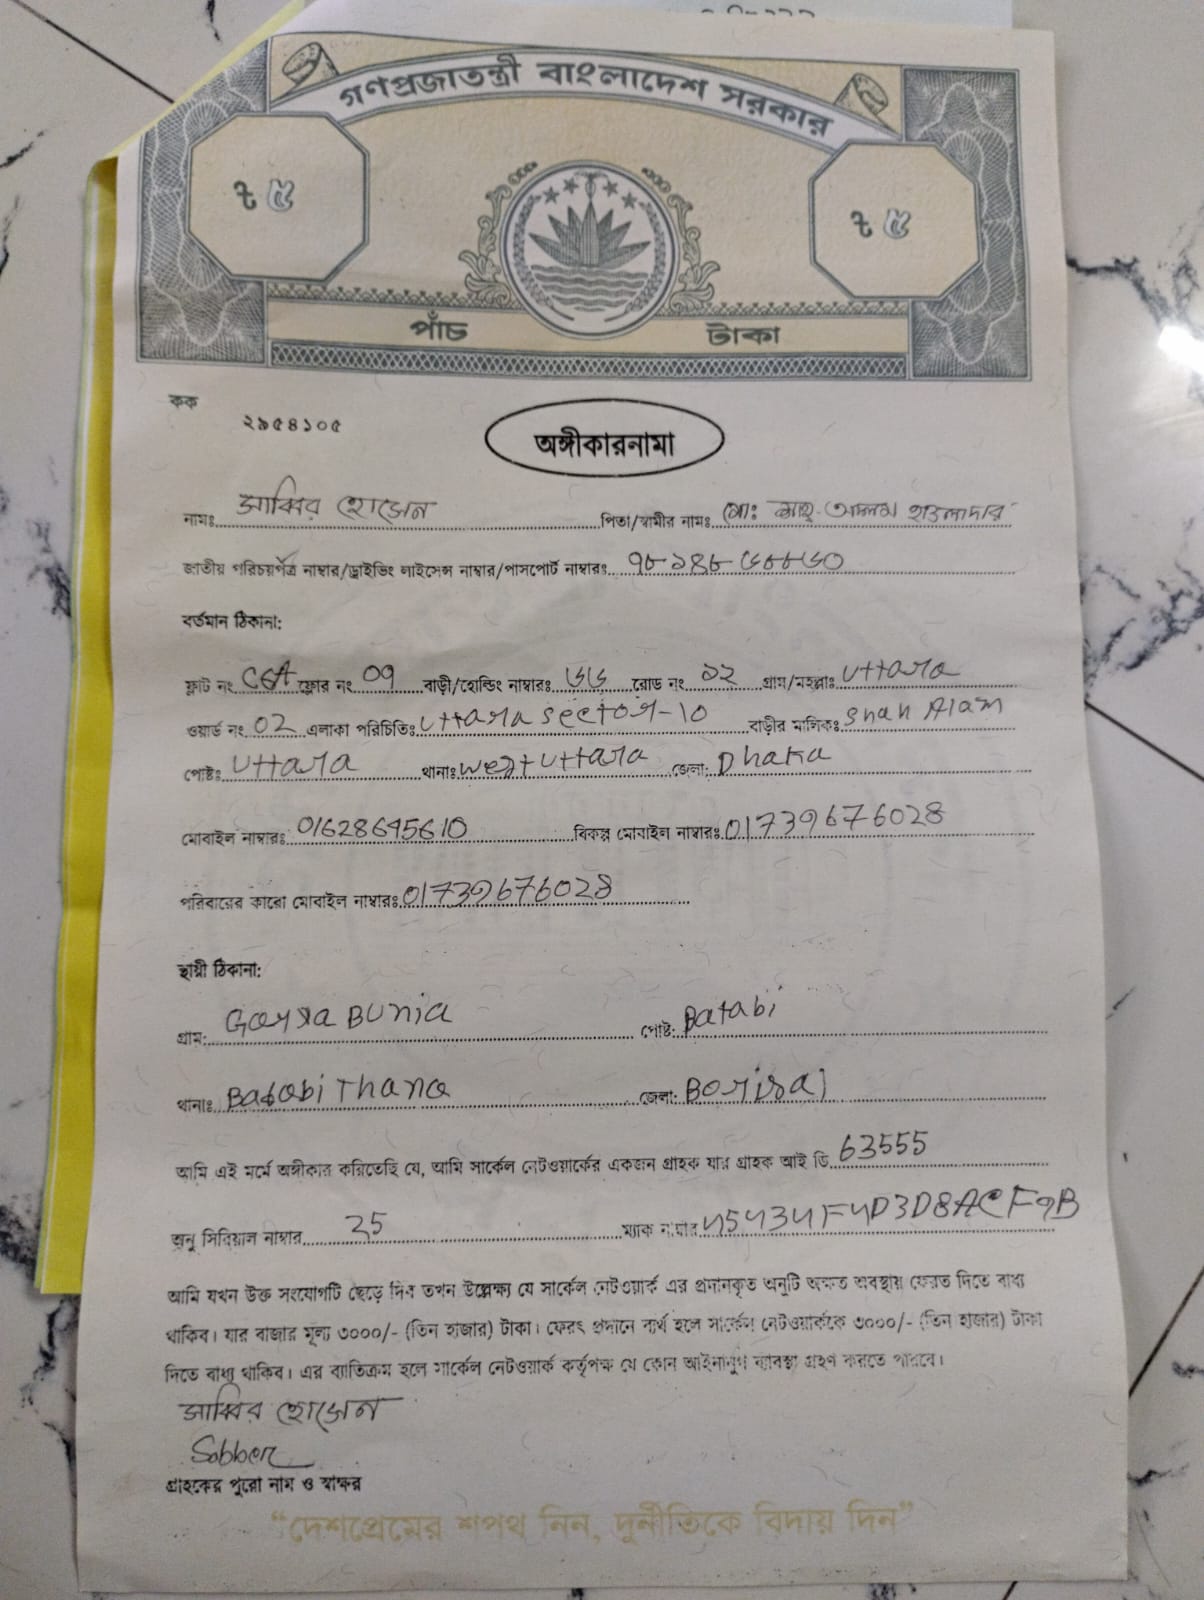 গণপ্রজাতন্ত্রী বাংলাদেশ সরকার
৳ ৫
৳ ৫
পাঁচ টাকা
কক
২৯৫৪১০৫
অঙ্গীকারনামা
নামঃ সাব্বির হোসেন পিতা/স্বামীর নামঃ মোঃ শাহ্ আলম হাওলাদার
জাতীয় পরিচয়পত্র নাম্বার/ড্রাইভিং লাইসেন্স নাম্বার/পাসপোর্ট নাম্বারঃ
বর্তমান ঠিকানা:
ফ্লাট নং ফ্লোর নং 09 বাড়ী/হোল্ডিং নাম্বারঃ ৬৬ রোড নং ১২ গ্রাম/মহল্লাঃ Uttara
ওয়ার্ড নং 02 এলাকা পরিচিতিঃ Uttara Sector-10 বাড়ীর মালিকঃ Shah Alam
পোষ্টঃ Uttara থানাঃ West Uttara জেলা: Dhaka
মোবাইল নাম্বারঃ 01628645610 বিকল্প মোবাইল নাম্বারঃ 01739676028
পরিবারের কারো মোবাইল নাম্বারঃ 01739676028
স্থায়ী ঠিকানা:
গ্রাম: Bunia পোষ্ট: Batabi
থানাঃ Thana জেলা: Borisal
আমি এই মর্মে অঙ্গীকার করিতেছি যে, আমি সার্কেল নেটওয়ার্কের একজন গ্রাহক যার গ্রাহক আই ডি 63555
অনু সিরিয়াল নাম্বার 25 ম্যাক নাম্বার
আমি যখন উক্ত সংযোগটি ছেড়ে দিব তখন উল্লেক্ষ্য যে সার্কেল নেটওয়ার্ক এর প্রদানকৃত অনুটি অক্ষত অবস্থায় ফেরত দিতে বাধ্য
থাকিব। যার বাজার মূল্য ৩০০০/- (তিন হাজার) টাকা। ফেরৎ প্রদানে ব্যর্থ হলে সার্কেল নেটওয়ার্ককে ৩০০০/- (তিন হাজার) টাকা
দিতে বাধ্য থাকিব। এর ব্যাতিক্রম হলে সার্কেল নেটওয়ার্ক কর্তৃপক্ষ যে কোন আইনানুগ ব্যাবস্থা গ্রহণ করতে পারবে।
সাব্বির হোসেন
Sabber
গ্রাহকের পুরো নাম ও স্বাক্ষর
“দেশপ্রেমের শপথ নিন, দুর্নীতিকে বিদায় দিন”